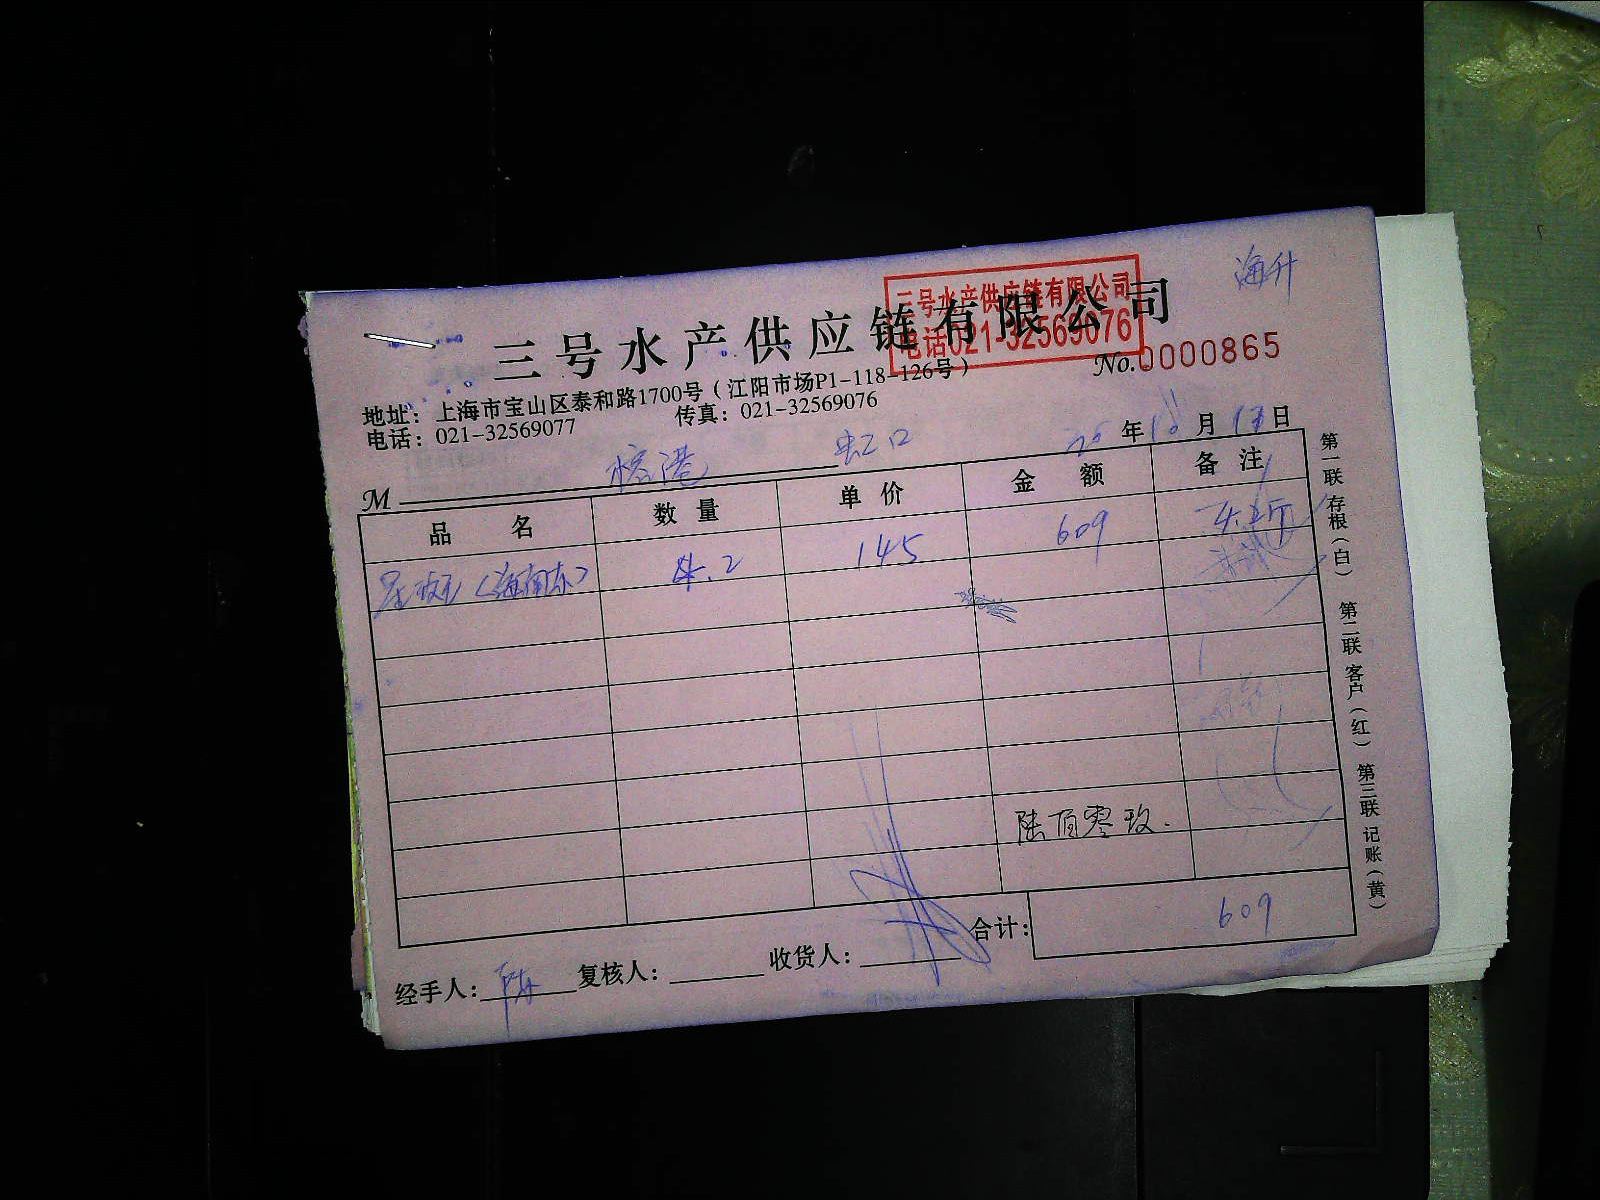 海升
三号水产供应链有限公司
电话021-32569076
三号水产供应链有限公司
No.0000865
地址：上海市宝山区泰和路1700号（江阳市场P1-118-126号）
电话：021-32569077 传真：021-32569076
M 榕港 虹口 20年10月17日
品名 数量 单价 金额 备注
（海南东） 4.2 145 609 4.2斤
陆百零玖.
合计： 609
经手人：陈 复核人： 收货人：
第一联 存根（白） 第二联 客户（红） 第三联 记账（黄）